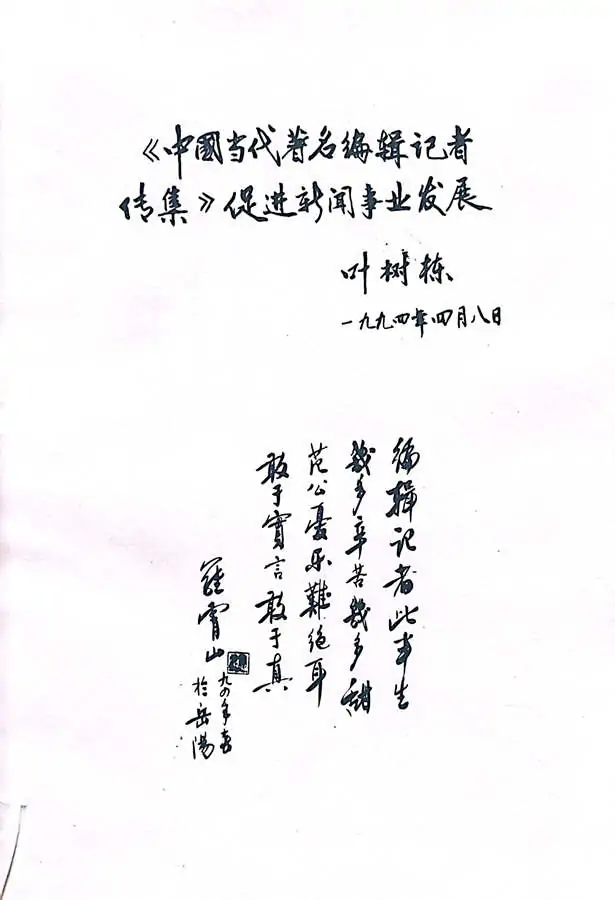 《中國当代著名编辑记者
传集》促进新闻事业发展
叶树栋
一九九四年四月八日
编輯记者此半生
幾多辛苦幾多甜
范公憂乐難绝耳
敢于實言敢于真
羅霄山
九四年春
於岳陽